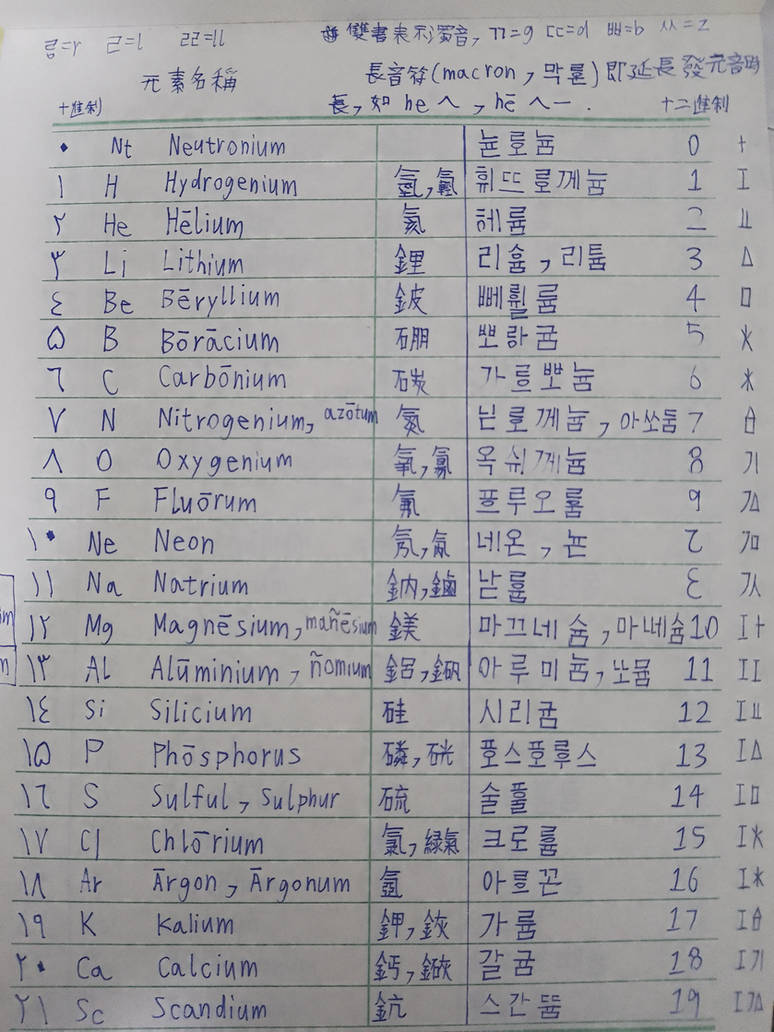 ᄛ=r ᄅ=l ᄙ=ll 雙書表示濁音, ㄲ=g ㄸ=d ㅃ=b ㅆ=z
元素名稱 長音符(macron, 막론)即延長發元音時
十進制 長,如 he ヘ, hē ヘー. 十二進制
٠ Nt Neutronium 뉸로늄 0
١ H Hydrogenium 氫, 휘뜨로께늄 1
٢ He Hēlium 氦 헤륨
۳ Li Lithium 鋰 리흄, 리튬 3
٤ Be Bēryllium 鈹 뻬륄륨 4
۵ B Bōrācium 硼 뽀라굼 5
٦ C Carbōnium 碳 가르뽀늄 6
٧ N Nitrogenium, azōtum 氮 닏로께늄, 아쏘둠 7
٨ O Oxygenium 氧, 옥쉬께늄 8
٩ F Fluōrum 氟 프루오룸 9
١٠ Ne Neon 氖, 氝 네온, 논
١١ Na Natrium 鈉, 鏀 낟륨
١٢ Mg Magnēsium, mañēsium 鎂 마끄네슘, 마 슘 10
١۳ Al Alūminium, ñomium 鋁, 아루미늄, 뮴 11
١٤ Si Silicium 硅 시리굼 12
١۵ P Phōsphorus 磷, 硄 포스포루스 13
١٦ S Sulful, Sulphur 硫 술풀 14
١٧ Cl Chlōrium 氯, 緑氣 크로륨 15
١٨ Ar Ārgon, Ārgonum 氬 아르꼰 16
١٩ K Kalium 鉀, 가륨 17
٢٠ Ca Calcium 鈣, 갈굼 18
٢١ Sc Scandium 鈧 스간뜜 19